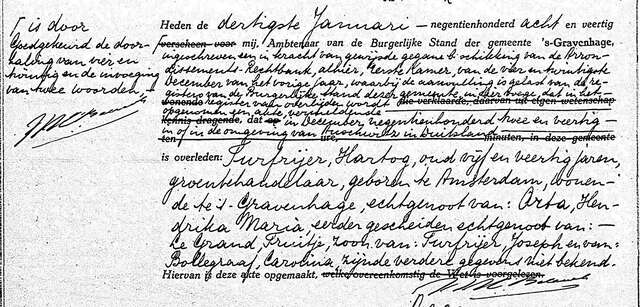 Γ is door
Goedgekeurd de door-
haling van vier en
twintig en de invoeging
van twee woorden.—
Heden de dertigste Januari — negentienhonderd acht en veertig
verscheen voor mij, Ambtenaar van de Burgerlijke Stand der gemeente 's-Gravenhage,
ingeschreven in kracht van gewijsde gegane beschikking van de Arron-
dissements-Rechtbank, alhier, Eerste Kamer, van de vier en twintigste
December van het vorige jaar, waarbij de aanvulling is gelast van de re-
gisters van de Burgerlijke Stand dezer gemeente, in dier voege, dat in het
nevens register van overlijden wordt die verklaarde, daarvan uit eigen wetenschap
opgenomen een akte, vermeldende
kennis dragende, dat op in December negentienhonderd twee en veertig —
in of in de omgeving van Auschwitz in Duitsland
ten ure minuten, in deze gemeente
is overleden: Turfrijer, Hartog, oud vijf en veertig jaren,
groentehandelaar, geboren te Amsterdam, wonen-
de te 's-Gravenhage, echtgenoot van: Arta, Hen-
drika Maria, eerder gescheiden echtgenoot van: —
Le Grand, Truitje, zoon van: Turfrijer, Joseph en van:
Bollegraaf, Carolina zijnde verdere gegevens niet bekend.
Hiervan is deze akte opgemaakt, welke overeenkomstig de Wet is voorgelezen.